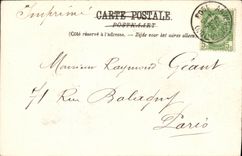 Imprimé
CARTE POSTALE
POSTKAART
(Côté réservé à l'adresse. — Zijde voor het adres alleen.)
Monsieur Raymond Géant
71 Rue Balagny
Paris